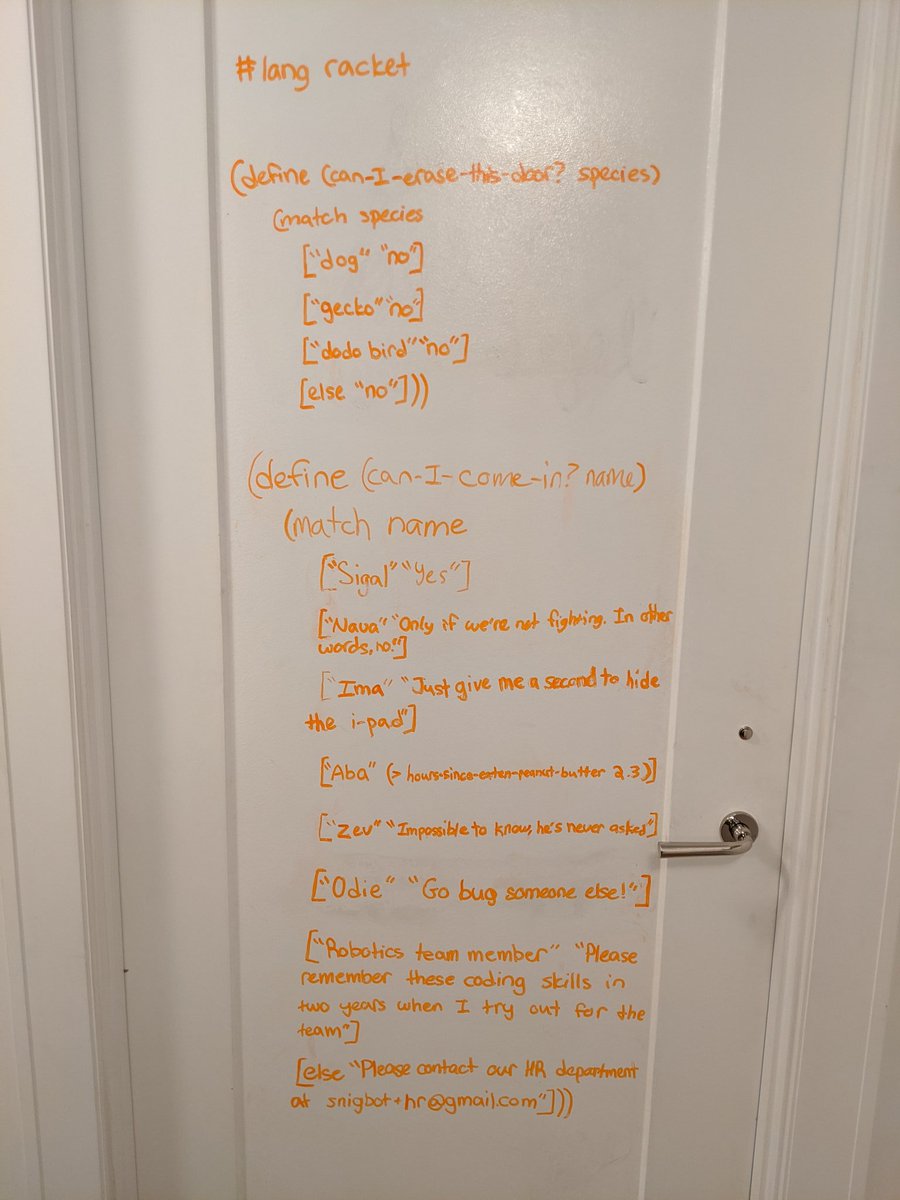 #lang racket
(define (can-I-erase-this-door? species)
(match species
["dog" "no"]
["gecko" "no"]
["dodo bird" "no"]
[else "no"]))
(define (can-I-come-in? name)
(match name
["Sigal" "Yes"]
["Nava" "Only if we're not fighting. In other
words, no."]
["Ima" "Just give me a second to hide
the i-pad"]
["Aba" (> hours-since-eaten-peanut-butter 2.3)]
["Zev" "Impossible to know, he's never asked"]
["Odie" "Go bug someone else!"]
["Robotics team member" "Please
remember these coding skills in
two years when I try out for the
team"]
[else "Please contact our HR department
at snigbot+hr@gmail.com"]))